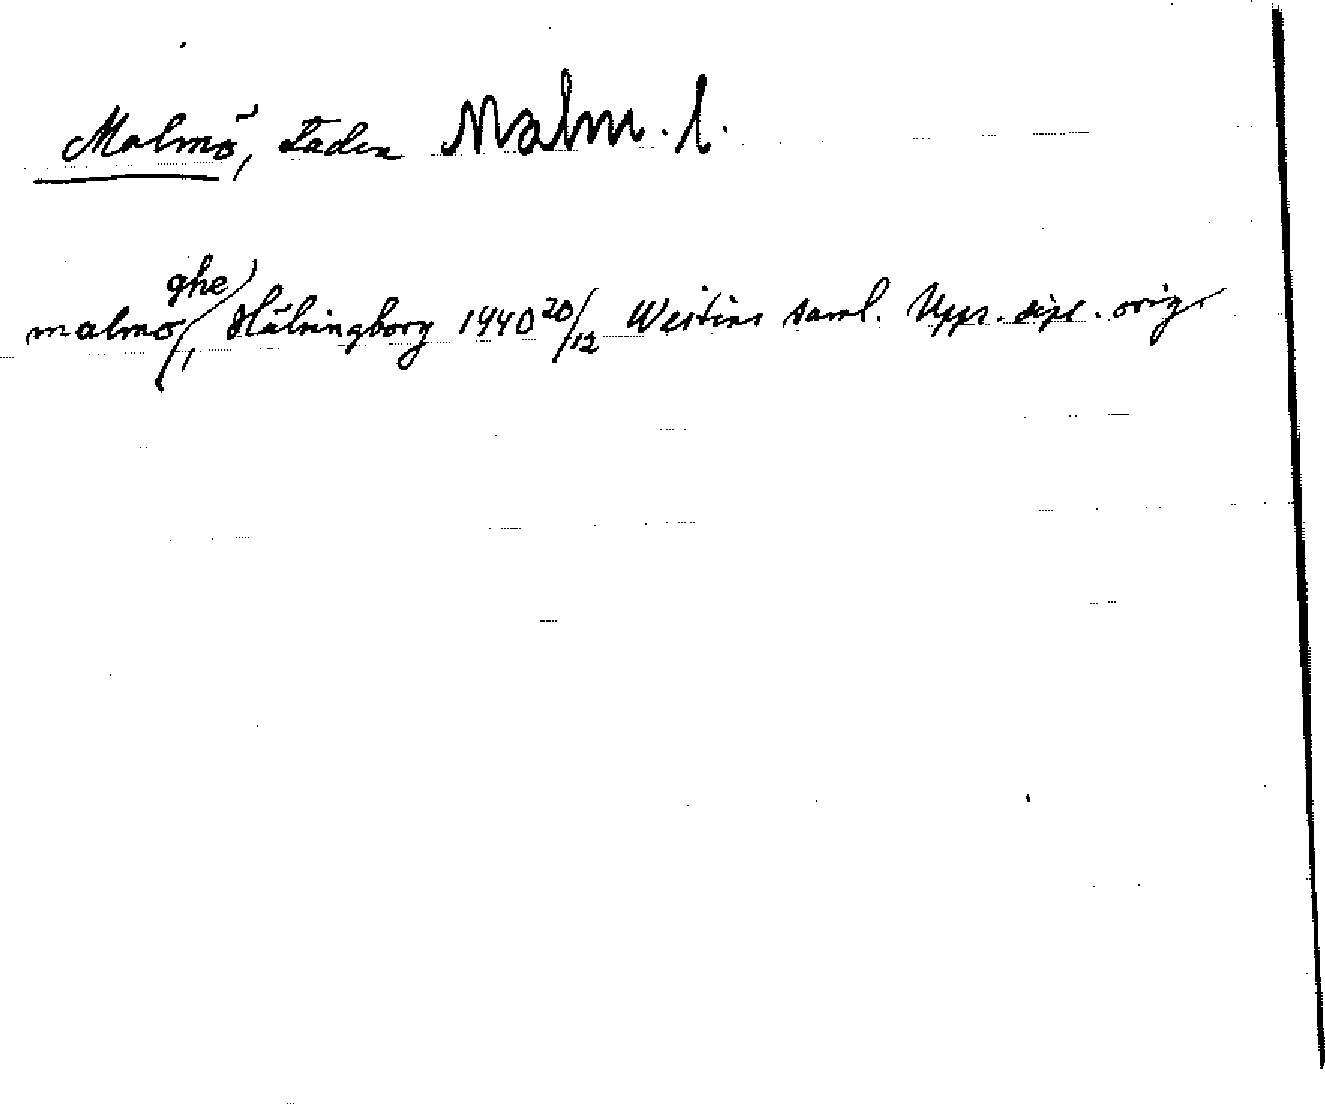 Malmö, staden Malm. l.
malmöghe, Hälsingborg 1440 20/12 Westins saml. Upps. dipl. orig.